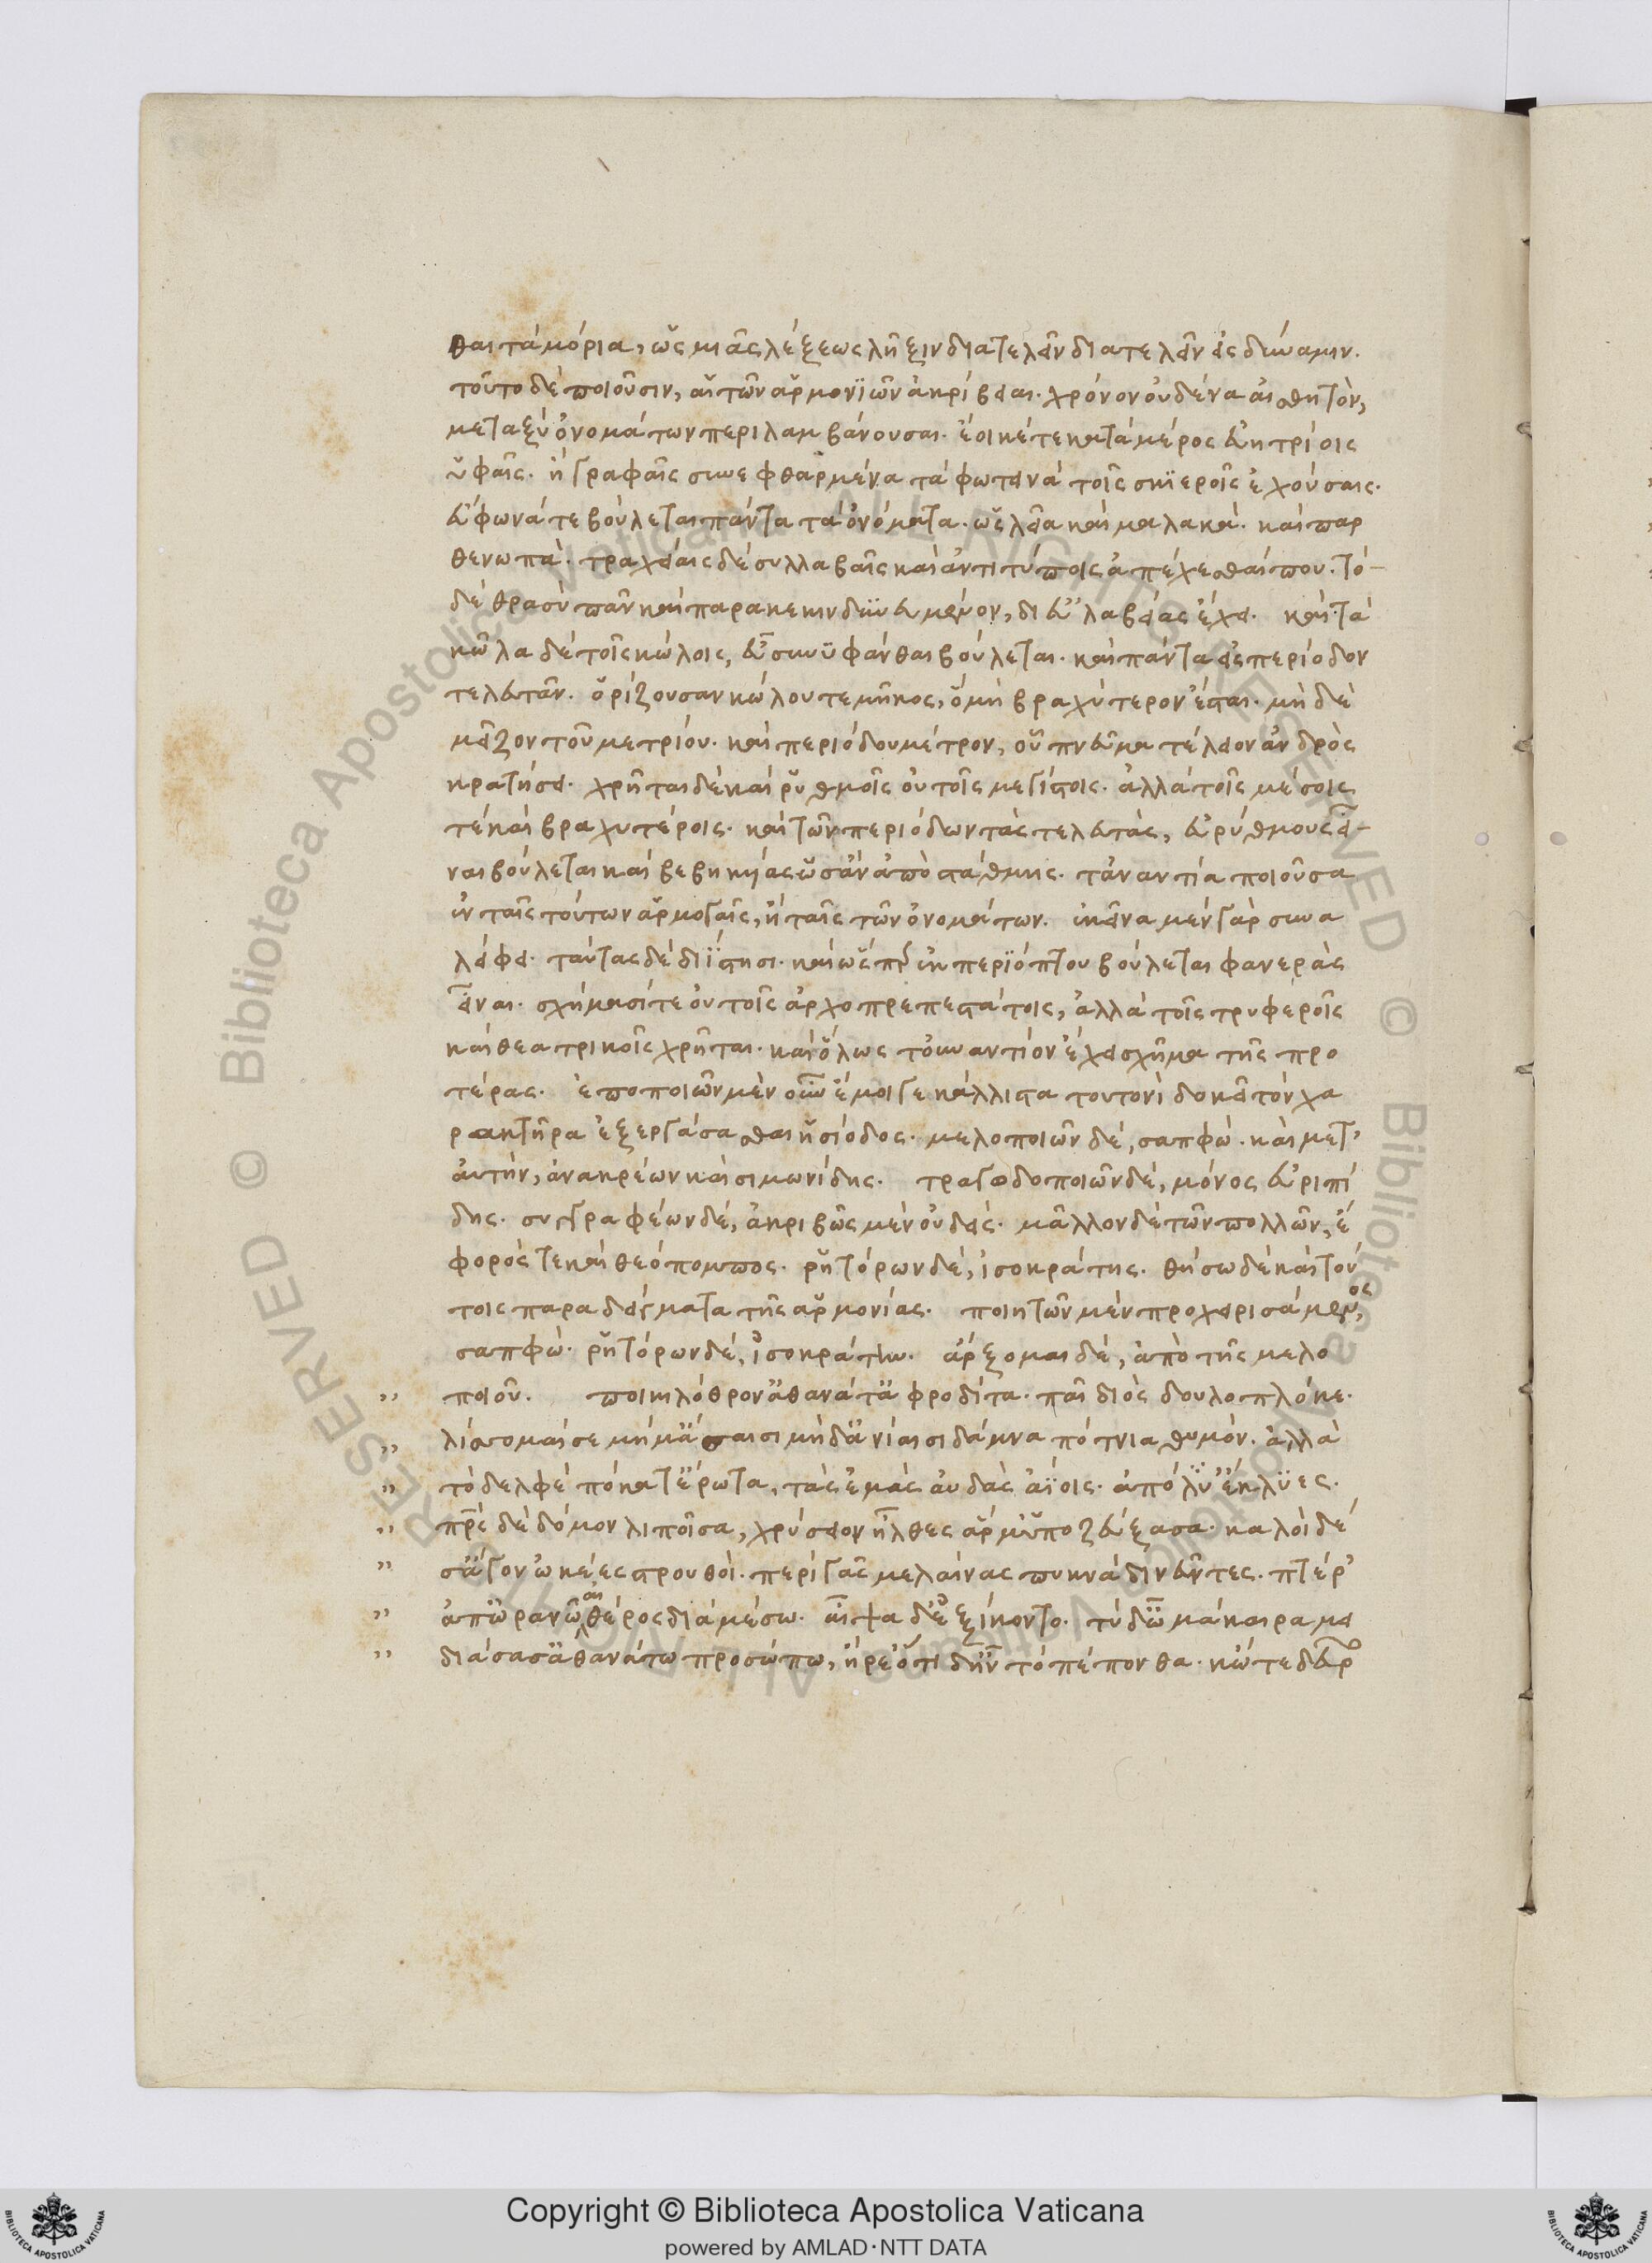 θαι τὰ μόρια, ὡς μιᾶς λέξεως λῆξιν διατελεῖν διατελεῖν εἰς δύναμιν.
τοῦτο δὲ ποιοῦσιν, αἱ τῶν ἁρμονϊῶν ἀκρίβειαι. χρόνον οὐδένα αἰσθητὸν,
μεταξὺ ὀνομάτων περιλαμβάνουσαι. ἔοικέ τε κατὰ μέρος εὐητρίοις
ὑφαῖς. ἢ γραφαῖς συνεφθαρμένα τὰ φωτεινὰ τοῖς σκϊεροῖς ἐχούσαις.
εὔφωνά τε βούλεται πάντα τὰ ὀνόματα. ὡς λεῖα καὶ μαλακά. καὶ παρ
θενωπὰ. τραχείαις δὲ συλλαβαῖς καὶ ἀντιτύποις ἀπέχεσθαί που. τὸ-
δὲ θρασὺ πᾶν καὶ παρακεκινδϋνευμένον, δι εὐλαβείας ἔχει. καὶ τὰ
κῶλα δὲ τοῖς κώλοις, εὖ συνϋφάνθαι βούλεται. καὶ πάντα εἰς περίοδον
τελευτᾶν. ὁρίζουσαν κώλου τε μῆκος, ὃ μὴ βραχύτερον ἔσται. μὴ δὲ
μεῖζον τοῦ μετρίου. καὶ περιόδου μέτρον, οὗ πνεῦμα τέλειον ἀνδρὸς
κρατήσει. χρῆται δὲ καὶ ῥυθμοῖς οὐ τοῖς μεγίστοις. ἀλλὰ τοῖς μέσοις
τὲ καὶ βραχυτέροις. καὶ τῶν περιόδων τὰς τελευτὰς, εὐρύθμους εἶ-
ναι βούλεται καὶ βεβηκυίας ὡς ἂν ἀπὸ στάθμης. τἀναντία ποιοῦσα
ἐν ταῖς τούτων ἁρμογαῖς, ἢ ταῖς τῶν ὀνομάτων. ἐκεῖνα μὲν γὰρ συνα
λείφει. ταύτας δὲ διΐστησι. καὶ ὥσπερ ἐκ περϊόπτου βούλεται φανερὰς
εἶναι. σχήμασί τε οὐ τοῖς ἀρχοπρεπεστάτοις, ἀλλὰ τοῖς τρυφεροῖς
καὶ θεατρικοῖς χρῆται. καὶ ὅλως τοὐναντίον ἔχει σχῆμα τῆς προ
τέρας. ἐποποιῶν μὲν οὖν ἔμοιγε κάλλιστα τουτονὶ δοκεῖ τὸν χα
ρακτῆρα ἐξεργάσασθαι ἡσίοδος. μελοποιῶν δέ, σαπφώ. καὶ μετ'
αὐτὴν, ἀνακρέων καὶ σιμωνίδης. τραγωδοποιῶν δὲ, μόνος εὐριπί
δης. συγγραφέων δὲ, ἀκριβῶς μὲν οὐδείς. μᾶλλον δὲ τῶν πολλῶν, ἔ
φορός τε καὶ θεόπομπος. ῥητόρων δὲ, ἰσοκράτης. θήσω δὲ καὶ τού
τοις παραδείγματα τῆς ἁρμονίας. ποιητῶν μὲν προχειρισάμενος,
σαπφώ. ῥητόρων δὲ, ἰσοκράτην. ἄρξομαι δέ, ἀπὸ τῆς μελο
,, ποιοῦ. ποικιλόθρον ἀθανάτ ἀφροδίτα. παῖ διὸς δουλοπλόκε.
,, λίσσομαί σε μή μ ἄσαισι μὴ δ ἀνίαισι δάμνα πότνια θυμόν. ἀλλὰ
,, τὸ δελφὲ πόκατ ἔρωτα, τὰς ἐμὰς αὐδὰς ἀΐοις. ἀπόλϋ ἔκλϋες.
,, πρὲ δὲ δόμον λιποῖσα, χρύσειον ἦλθες ἅρμ ὑποζεύξασα. καλοὶ δέ
,, σ ἄγον ὠκέες στρουθοὶ. περὶ γᾶς μελαίνας πυκνὰ δινεῦντες. πτέρ'
,, ἀπ ὠρανῶ αἰθέρος διὰ μέσω. αἶψα δ' ἐξίκοντο. τὺ δ ὦ μάκαιρα μει
,, διάσασ ἀθανάτω προσώπω, ἤρε' ὅτι δ ἦν τὸ πέπονθα. κ' ὤτε δεῦρ